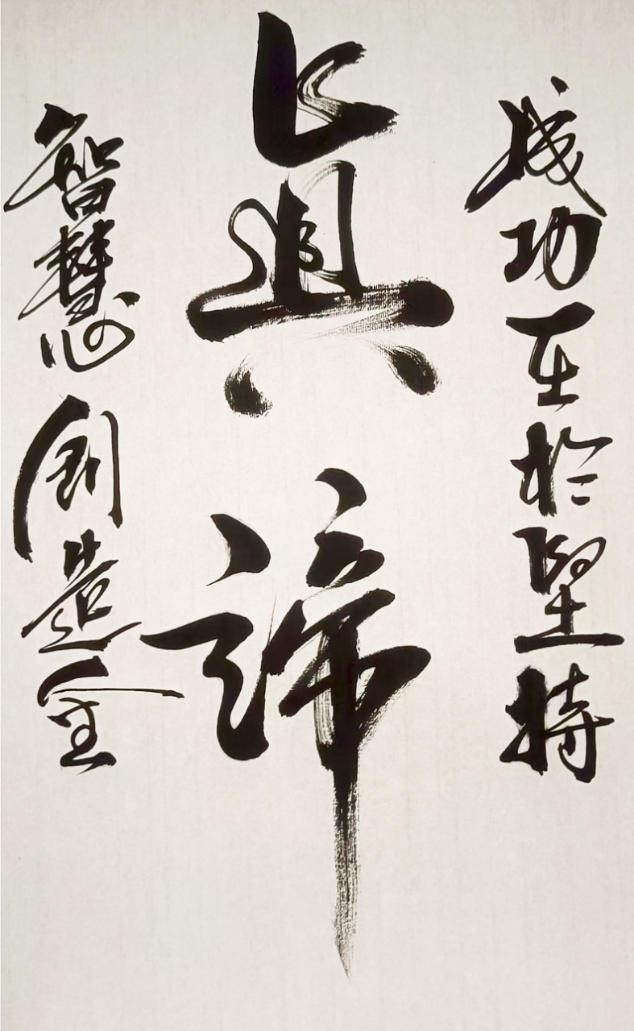 成功在於堅持
眞諦
智慧創造